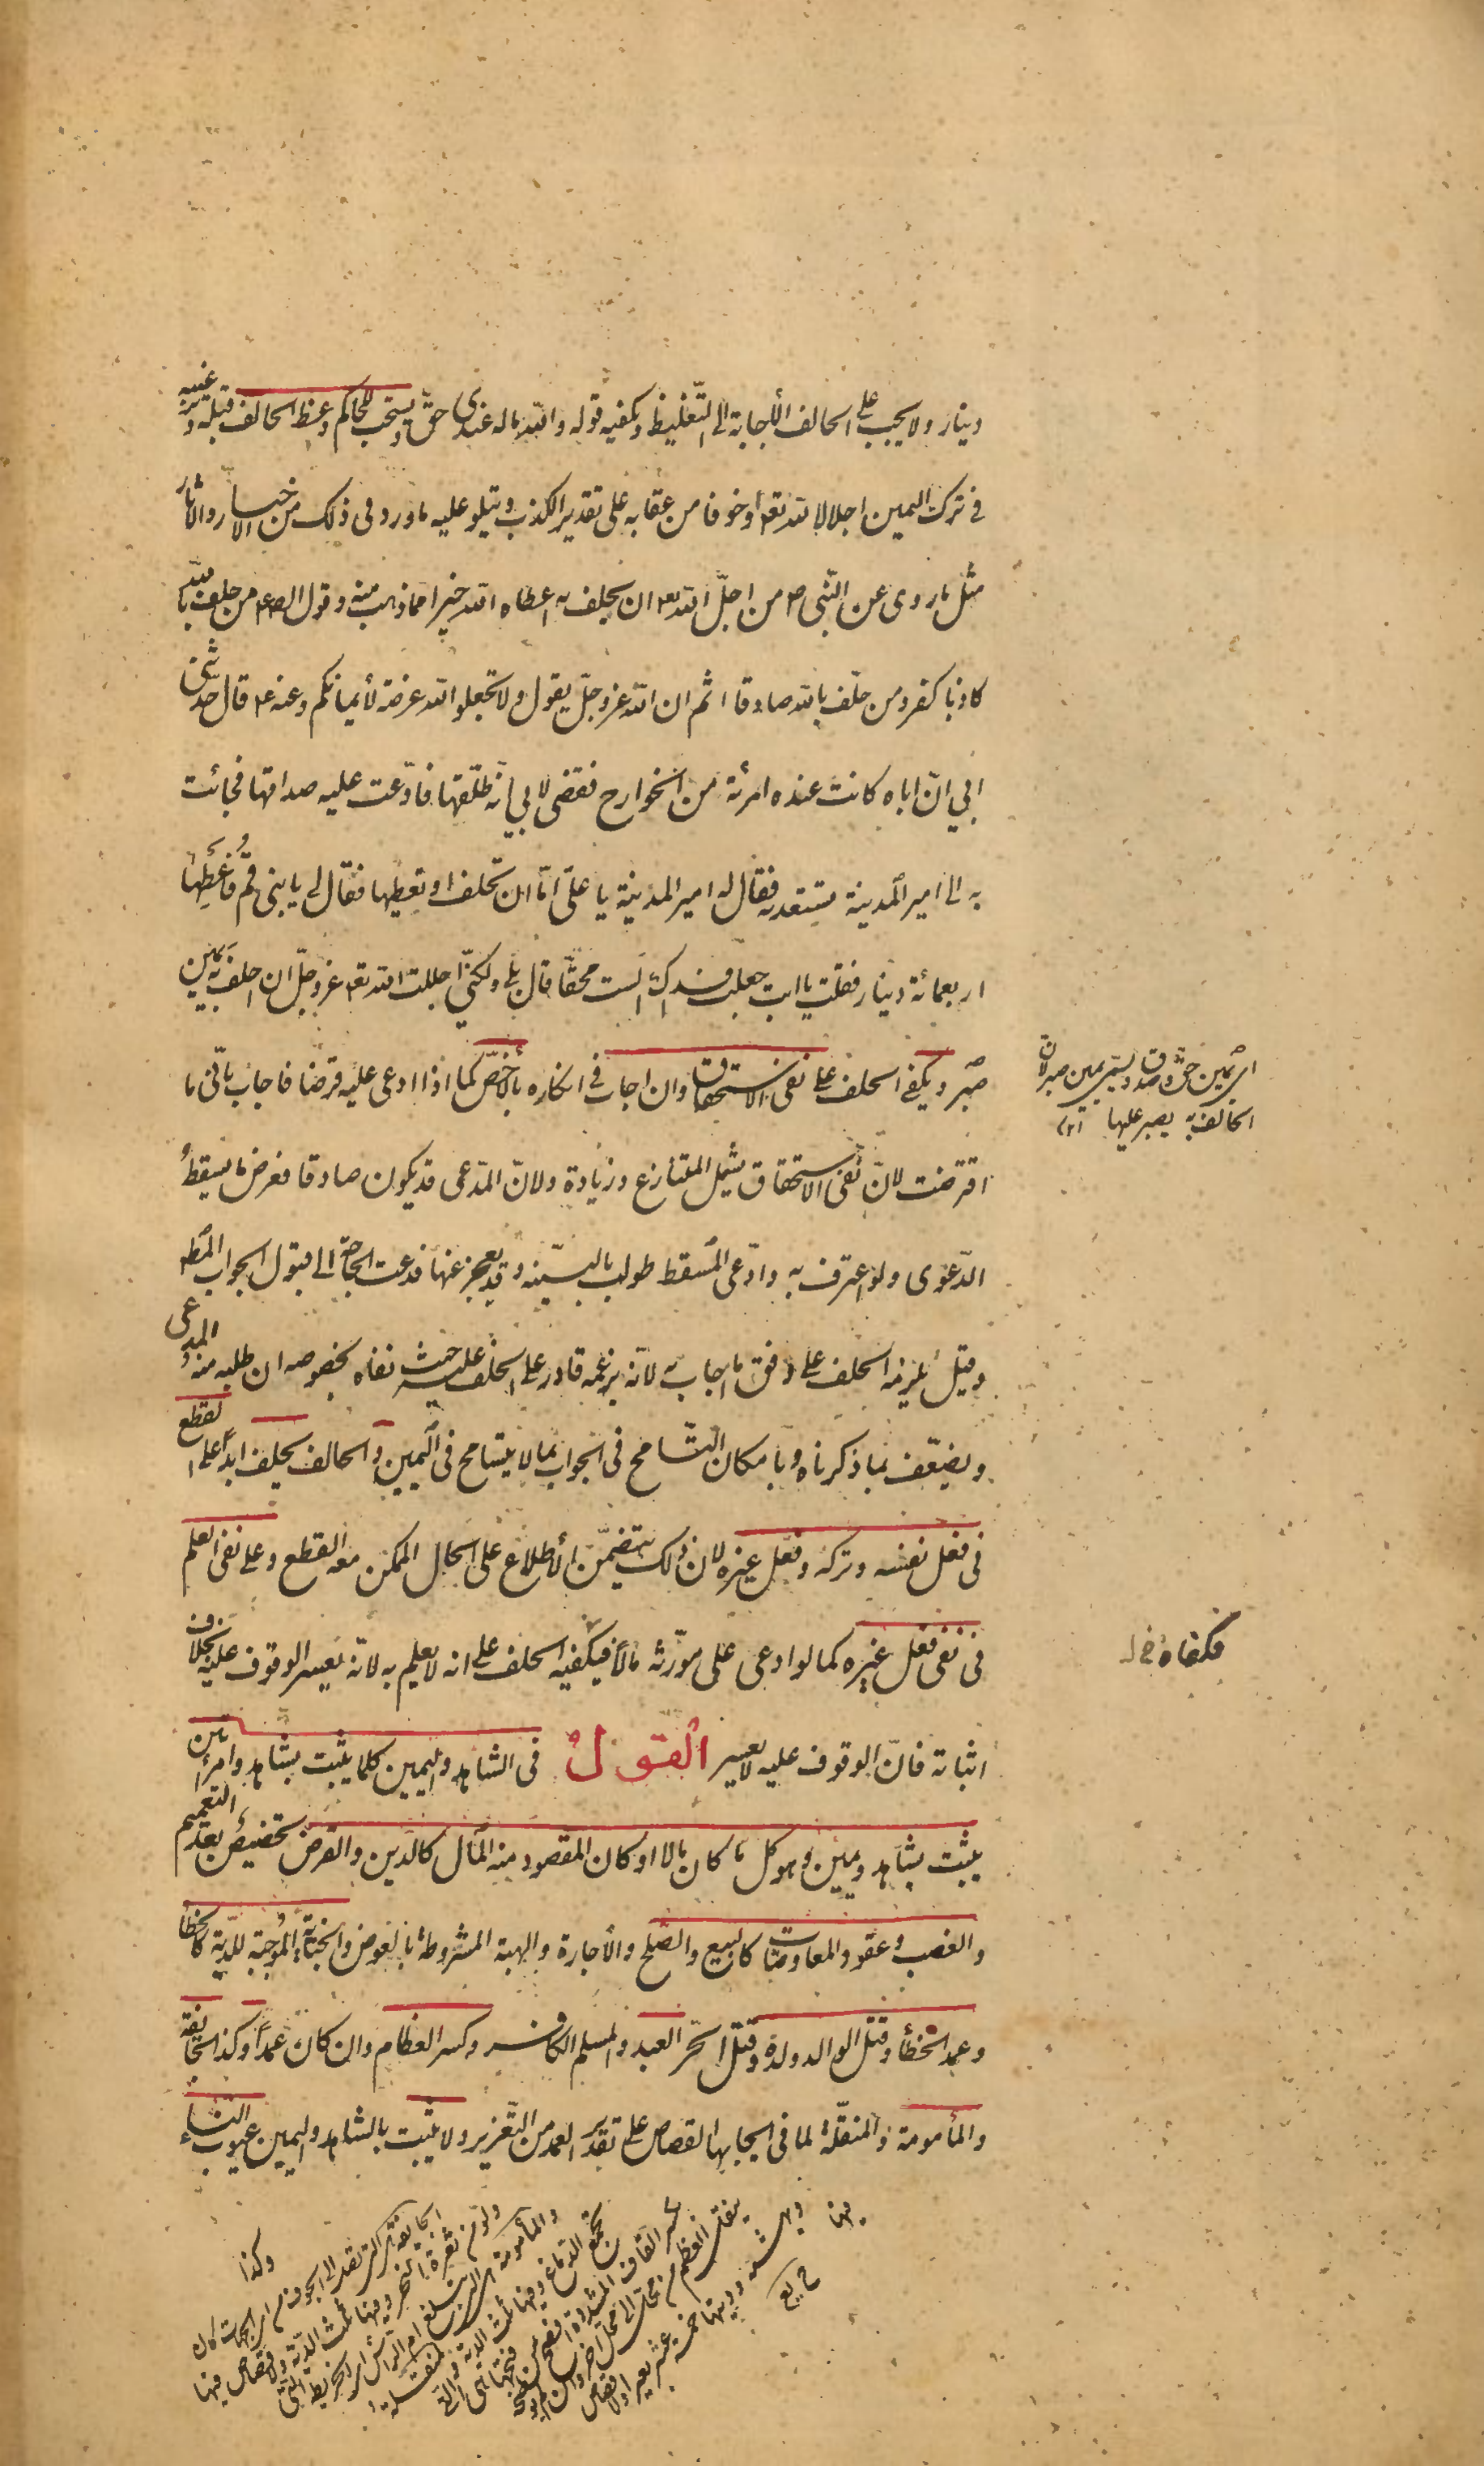 دينار ولا يجب على الحالف الأجابة الى التّغليظ ويكفيه قوله والله ماله عندى حقّ ويستحب للحاكم وعظ الحالف قبله وترغيبه
في ترك اليمين اجلالا لله تعه او خوفا من عقابه على تقدير الكذب ويتلو عليه ما ورد فى ذلك من الاخبار والاثار
مثل ما روى عن النّبى ص من اجلّ الله تعه ان يحلف به اعطاه الله خيرا مما ذهب منه وقول الص ع من حلف بالله
كاذبا كفر ومن حلف بالله صادقا اثم ان الله عز وجلّ يقول ولا تجعلوا الله عرضة لأيمانكم وعنه ع قال حدّثنى
ابي انّ اباه كانت عنده امرئة من الخوارج فقضى لابي انّه طلّقها فادّعت عليه صداقها فجائت
به الى امير المدينة تستعديه فقال له امير المدينة يا علىّ امّا ان تحلف او تعطيها فقال لى يا بنى قُم فاَعطِها
اربعمائة دينار فقلت يا ابت جعلت فداك الست محقّا قال بلى ولكنّى اجللت الله تعه عز وجلّ ان احلف به يمين
صبر ويكفى الحلف على نفى الاستحقاق وان اجاب فى انكاره بالأخصّ كما اذا ادعى عليه قرضا فاجاب بانّى ما
اى يمين حقّ وصدق وتسمّى يمين صبر لان
الحالف به يصبر عليها ١٢
اقترضت لانّ نفى الاستحقاق يشمل المتنازع وزيادة ولانّ المدّعى قد يكون صادقا فعرض ما يسقط
الدّعوى ولو اعترف به وادّعى المسقط طولب بالبيّنه وقد يعجز عنها فدعت الحاجة الى قبول الجواب المط
وقيل يلزمه الحلف على وفق ما اجاب به لانّه بزعمه قادر على الحلف عليه حيث نفاه بخصوصه ان طلبه منه المدعى
ويضعّف بما ذكرناه وبامكان التّسامح فى الجواب بما لا يتسامح فى اليمين والحالف يحلف ابدًا على القطع
فى فعل نفسه وتركه وفعل غيره لان ذلك يتضمّن الاطلاع على الحال الممكن معه القطع وعلى نفى العلم
فى نفى فعل غيره كما لو ادعى على مورّثه مالا فيكفيه الحلف على انه لا يعلم به لانّه يعسر الوقوف عليه بخلاف
فكفاه خ ل
اثباته فانّ الوقوف عليه لا يعسر القول فى الشاهد واليمين كلما يثبت بشاهد وامرأتين
يثبت بشاهد ويمين وهو كل ما كان مالا او كان المقصود منه المال كالدّين والقرض تخصيص بعد التعميم
والغصب وعقود المعاوضات كالبيع والصّلح والأجارة والهبة المشروطة بالعوض والجناية الموجبة للدّية كالخطأ
وعمد الخطأ وقتل الوالد ولده وقتل الحرّ العبد والمسلم الكافر وكسر العظام وان كان عمدًا وكذا الجائفة
والمأمومة والمنقّلة لما فى ايجابها القصاص على تقدير العمد من التّغرير ولا يثبت بالشاهد واليمين عيوب النساء
وكذا
الجايفة هى التى تصل الى الجوف من اى الجهات كان
ولو من ثغرة النحر وفيها ثلث الدّية ولا قصاص فيها
والمأمومة هى التى تبلغ ام الرأس اى الخريطة التى
تجمع الدّماغ وفيها ثلث الدية